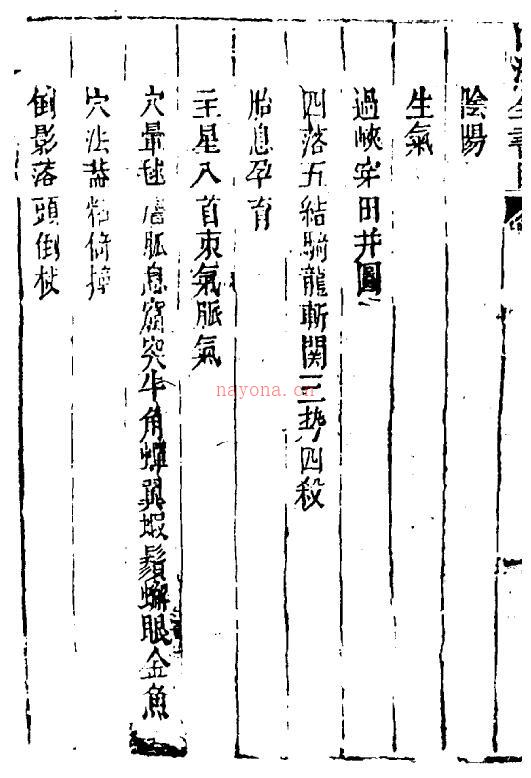 全書目
陰陽
生氣
過峽穿田并圖
四落五結騎龍斬関三勢四殺
胎息孕育
主星入首束氣脈氣
穴暈毬脈息窟突牛角蟬翼蝦鬚蠏眼金魚
穴法蓋粘倚撞
倒影落頭倒杖
nayona.cn